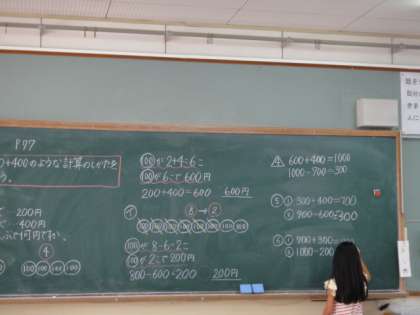 P77
0+400のような計算のしかたを
う。
て 200円
で 400円
んぶで何円ですか。
④
100 100 100 100
100が2+4=6こ
100が6こで600円
200+400=600 600円
イ
⑧→②
100 100 100 100 100 100 100 100
100が 8-6=2こ
100が2こで200円
800-600=200 200円
⚠ 600+400=1000
1000-700=300
⑤ ① 300+400=700
② 900-600=300
⑥ ① 700+300=
② 1000-200